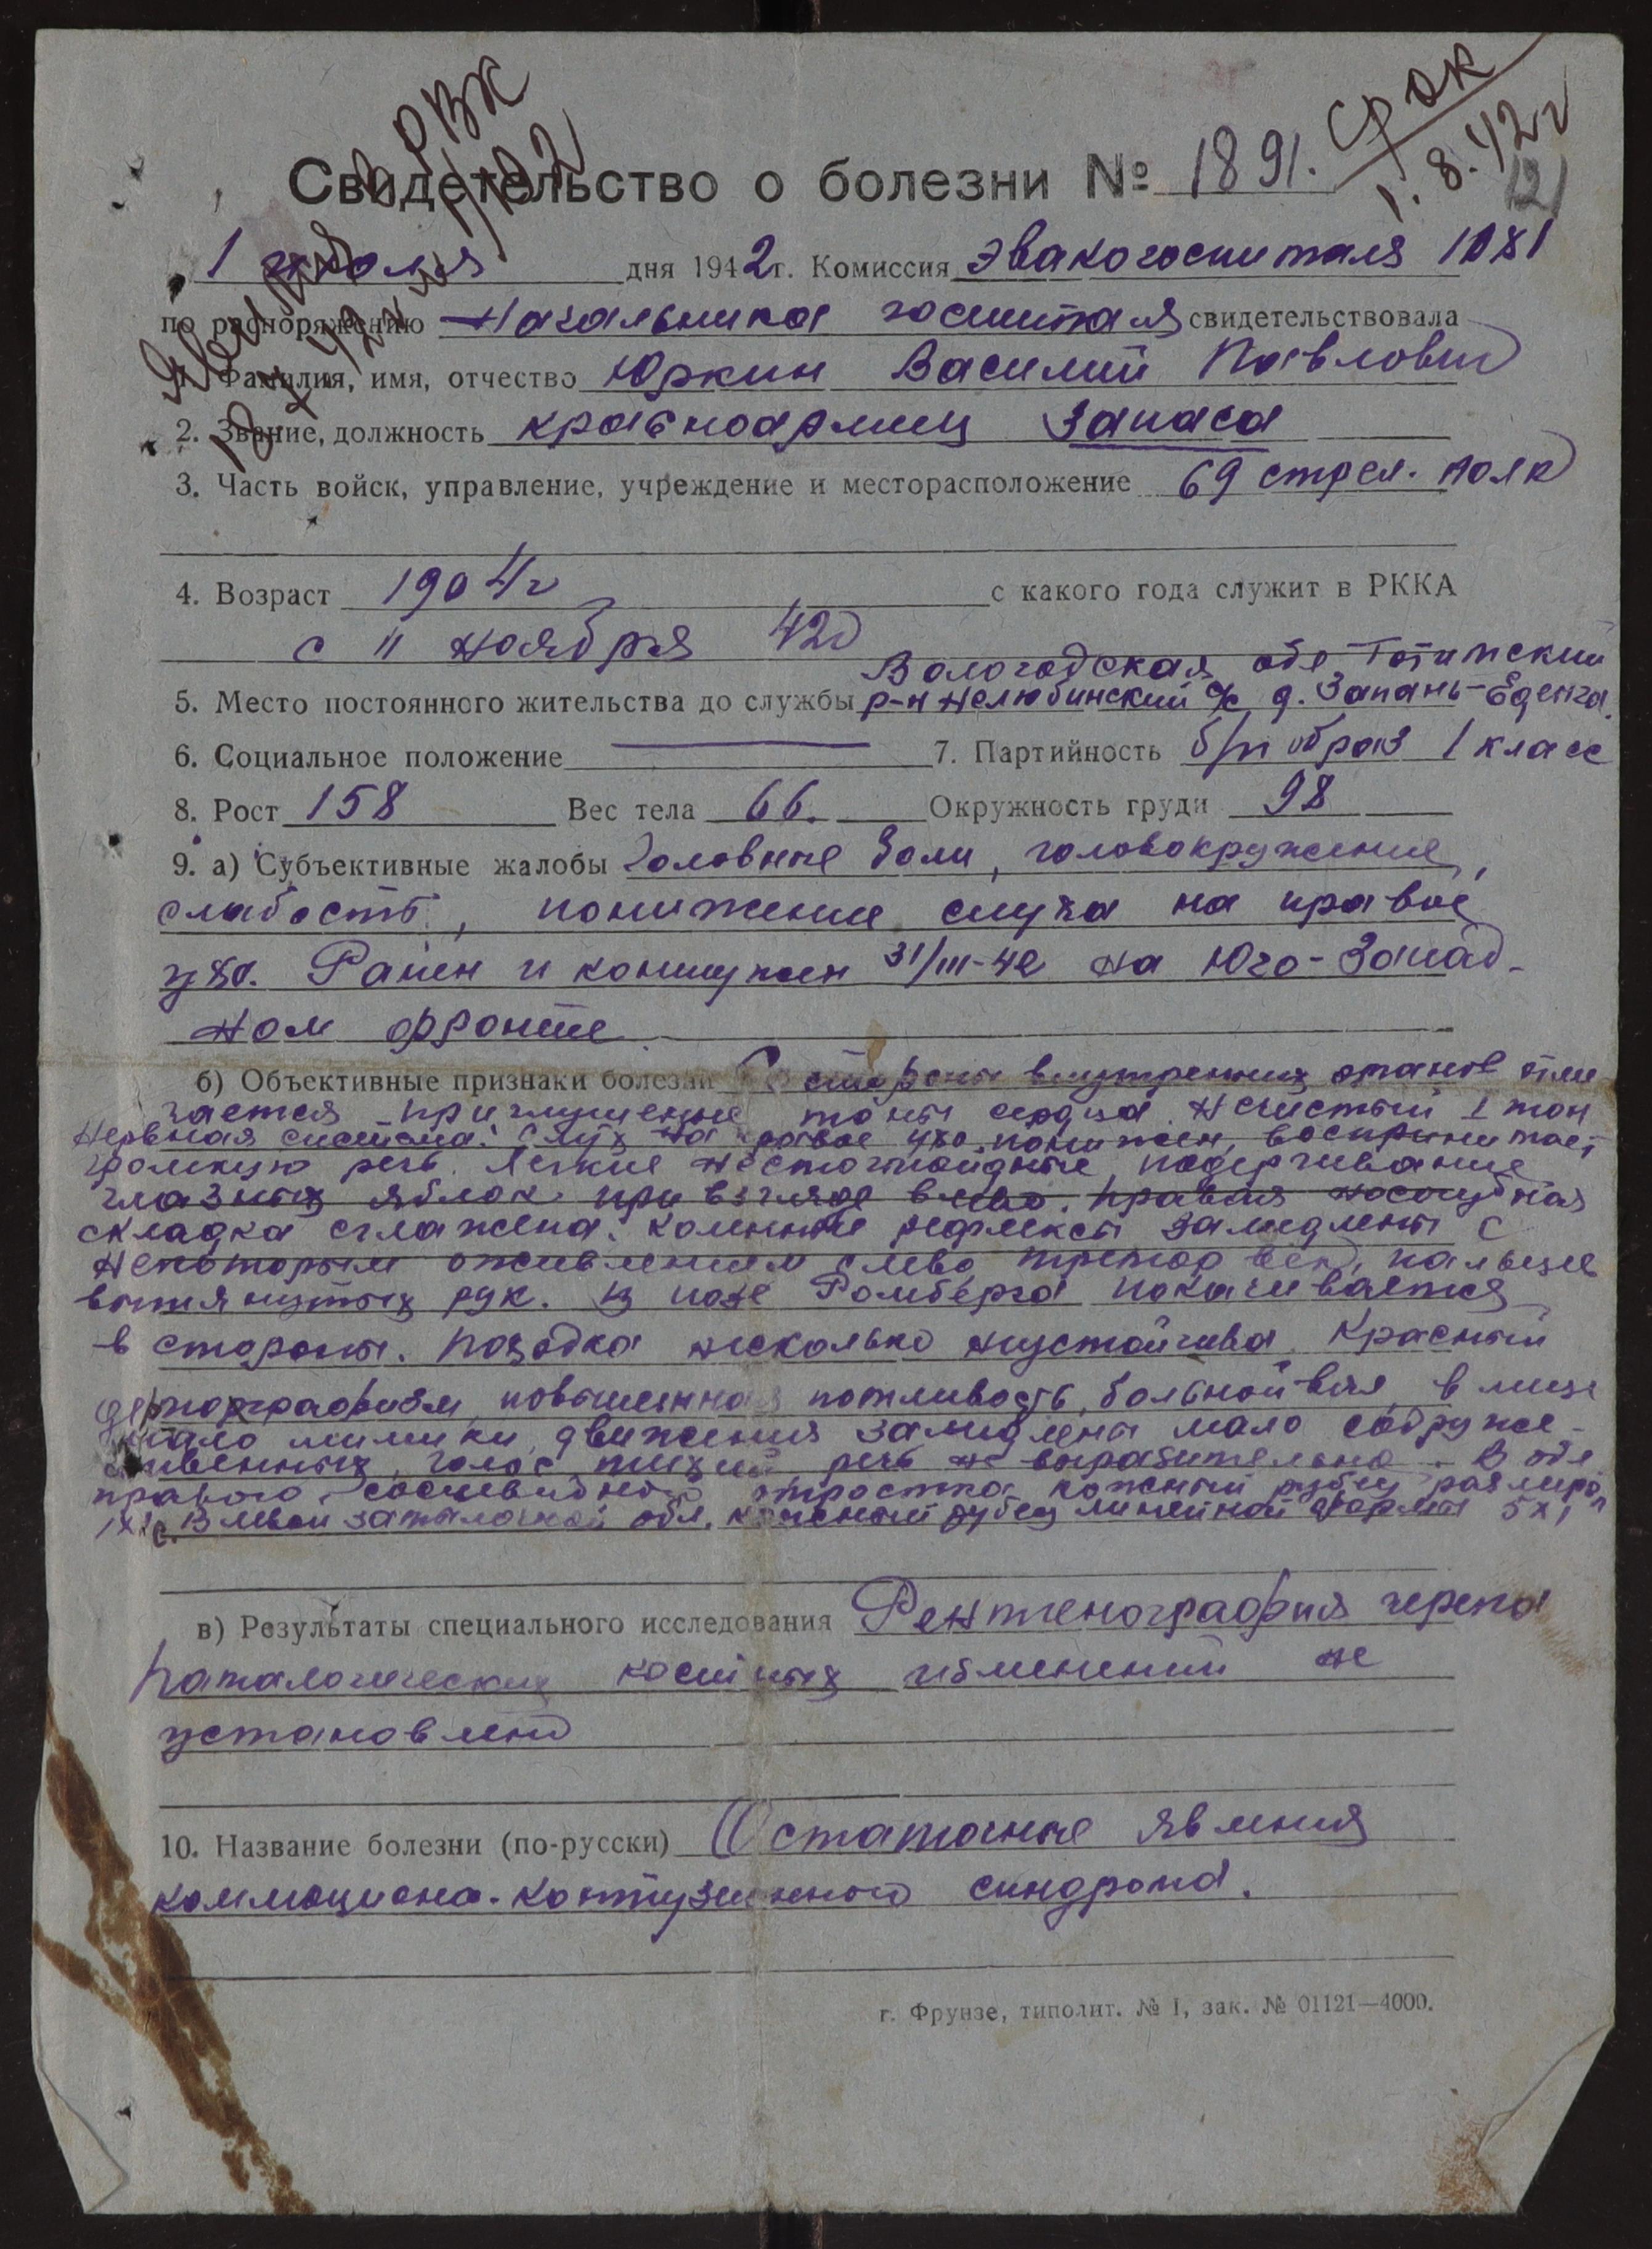 Срок
1.8.42 г
Свидетельство о болезни № 1891.
1 июля дня 1942 г. Комиссия эвакогоспиталя 1081
по распоряжению Начальника госпиталя свидетельствовала
1. Фамилия, имя, отчество Юркин Василий Павлович
2. Звание, должность красноармеец запаса
3. Часть войск, управление, учреждение и месторасположение 69 стрел. полк
4. Возраст 1904 г с какого года служит в РККА
с 11 ноября
Вологодская обл Тотемский
5. Место постоянного жительства до службы р-н Нелюбинский с/с д. Запань-Еденга.
6. Социальное положение — 7. Партийность б/п образ 1 класс
8. Рост 158 Вес тела 66. Окружность груди 98
9. а) Субъективные жалобы Головные боли, головокружение,
слабость, понижение слуха на правое
ухо. Ранен и контужен 31/III-42 на Юго-Запад-
ном фронте.
б) Объективные признаки болезни Со стороны внутренних органов отме
чается приглушенные тоны сердца. Нечистый I тон
Нервная система: Слух на правое ухо понижен, воспринимает
громкую речь. Легкие нистагмоидные подергивание
глазных яблок при взгляде влево. Правая носогубная
складка сглажена. Коленные рефлексы замедлены с
некоторым оживлением слева тремор век, пальцев
вытянутых рук. В позе Ромберга покачивается
в стороны. Походка несколько неустойчива. Красный
дермографизм, повышенная потливость, больной вял, в лице
мало мимики, движения замедлены мало содруже-
ственных, голос тихий, речь не выразительна. В обл
правого сосцевидного отростка кожный рубец размером
1х1 с. В левой затылочной обл. кожный рубец линейной формы 5х1
в) Результаты специального исследования Рентгенография черепа
паталогических костных изменений не
установлено
10. Название болезни (по-русски) Остаточные явления
коммоциона-контузионного синдрома.
г. Фрунзе, типолит. № 1, зак. № 01121—4000.